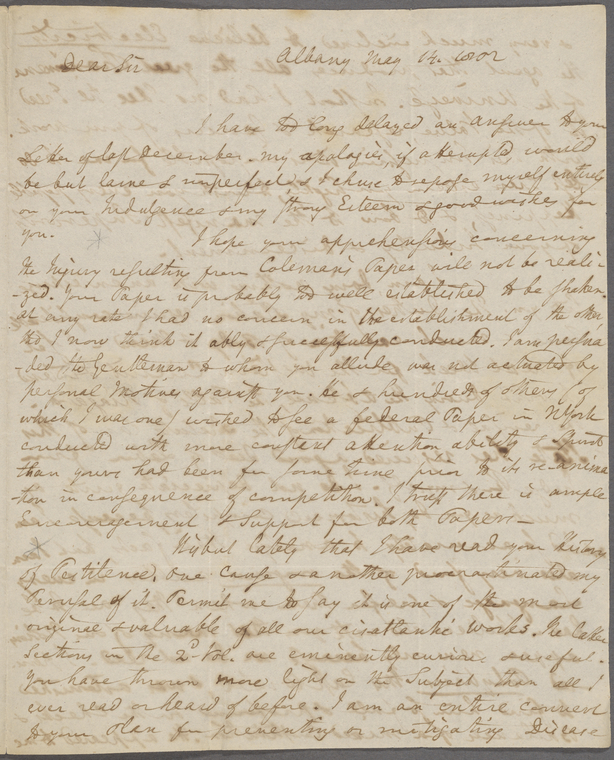 Albany May 14. 1802
Dear Sir
I have too long delayed an answer to your
Letter of last December. my apologies, if attempted, would
be but lame & imperfect & I chuse to repose myself entirely
on your Indulgence & my strong Esteem & good wishes for
you.
I hope your apprehensions concerning
the Injury resulting from Coleman's Paper will not be reali
-zed. Your Paper is probably too well established to be shaken
at any rate I had no concern in the establishment of the other
tho I now think it ably & successfully conducted. I am persua
-ded the Gentleman to whom you allude was not actuated by
personal motives against you. He & hundreds of others (of
which I was one) wished to see a federal Paper in NYork
conducted with more constant attention ability & Spirit
than yours had been for some time prior to its reanima
-tion in consequence of competition. I trust there is ample
Encouragement & Support for both Papers—
Tis but lately that I have read your History
of Pestilence. one cause & another procrastinated my
Perusal of it. Permit me to say it is one of the most
original & valuable of all our cisatlantic works. The latter
Sections in the 2d Vol. are eminently curious & useful.
You have thrown more light on the Subject than all I
ever read or heard of before. I am an entire convert
to your Plan for preventing or mitigating Disease